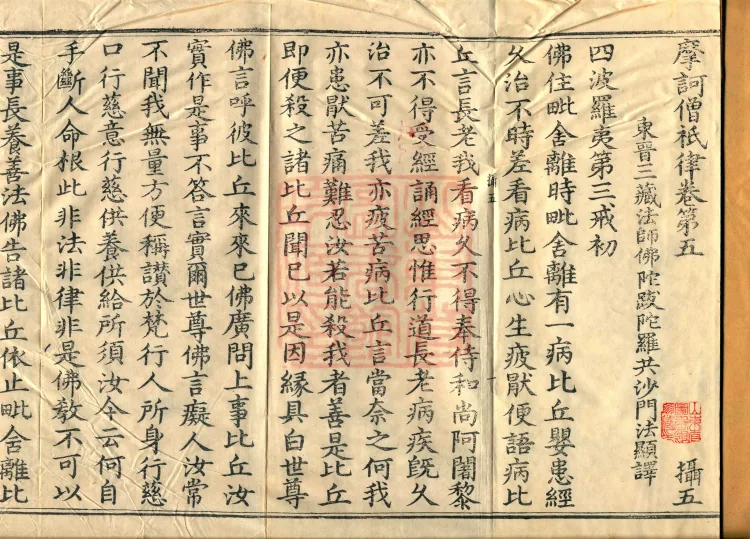 摩訶僧祇律卷第五 攝五
東晉三藏法師佛陀跋陀羅共沙門法顯譯
四波羅夷第三戒初
佛住毗舍離時毗舍離有一病比丘嬰患經
久治不時差看病比丘心生疲猒便語病比
攝五
丘言長老我看病久不得奉侍和尚阿闍黎
亦不得受經誦經思惟行道長老病疾旣久
治不可差我亦疲苦病比丘言當奈之何我
亦患猒苦痛難忍汝若能殺我者善是比丘
即便殺之諸比丘聞已以是因緣具白世尊
佛言呼彼比丘來來已佛廣問上事比丘汝
實作是事不答言實爾世尊佛言癡人汝常
不聞我無量方便稱讃於梵行人所身行慈
口行慈意行慈供養供給所須汝今云何自
手斷人命根此非法非律非是佛教不可以
是事長養善法佛告諸比丘依止毗舍離比